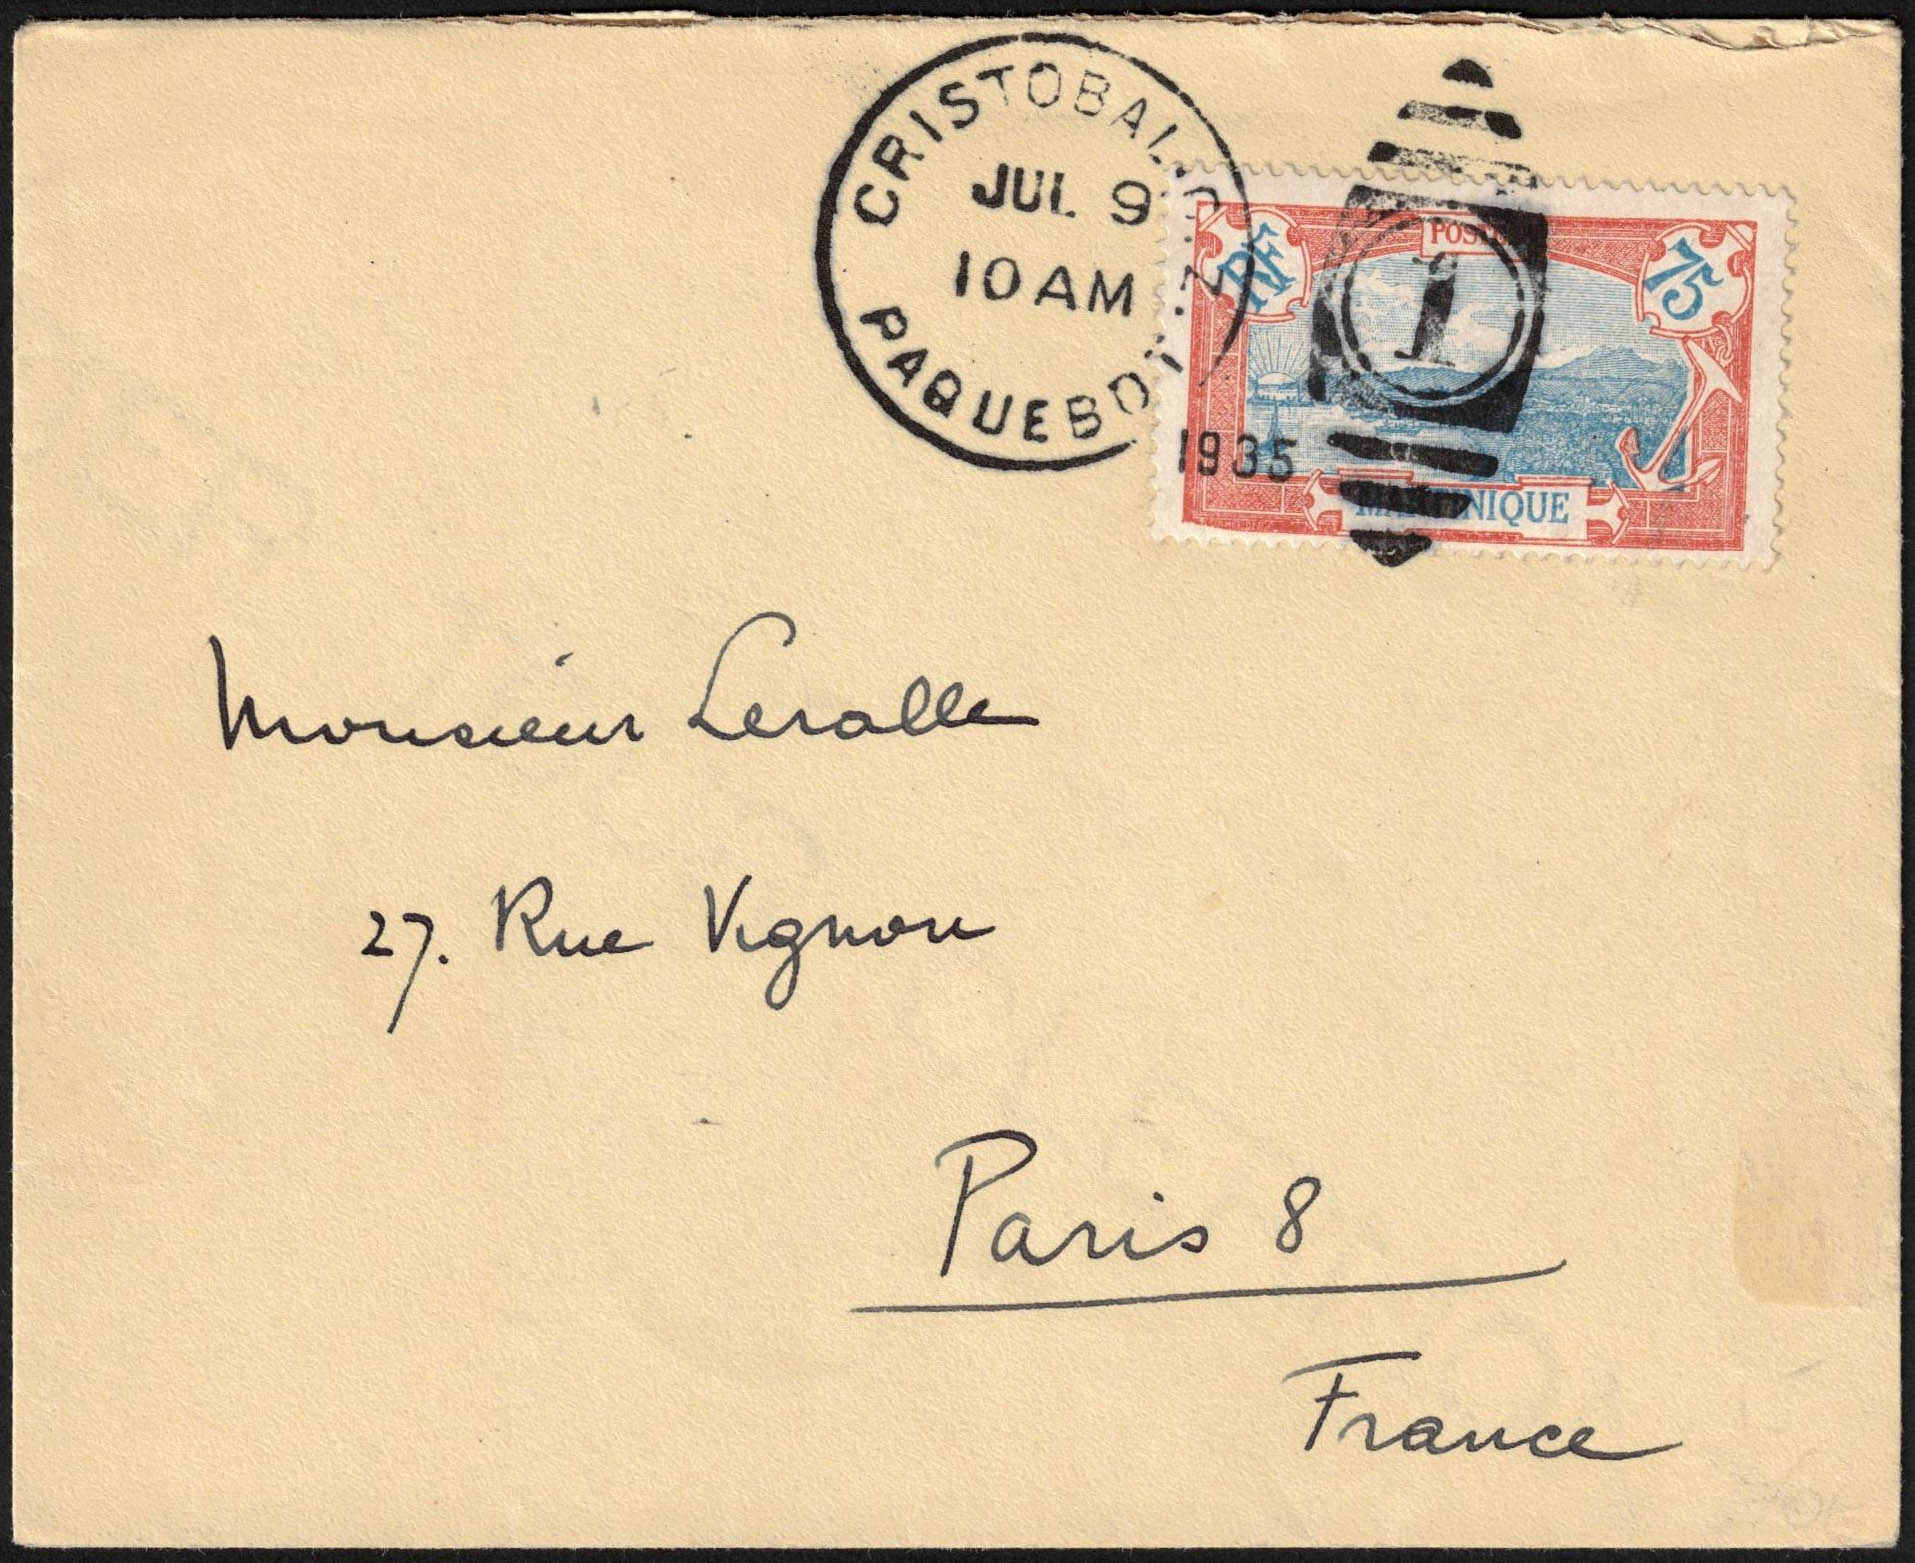 CRISTOBAL C.Z.
JUL 9
10 AM
PAQUEBOT
1935
1
RF
POSTES
75
MARTINIQUE
Monsieur Leralle
27. Rue Vignon
Paris 8
France